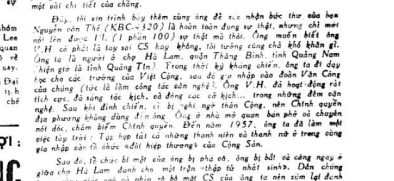 một vài chi tiết của chàng.
Đây, tôi xin trình bày thêm cùng ông để xác nhận bức thư của bạn
Nguyễn văn Thế (KBC-4320) là hoàn toàn đúng sự thật, nhưng chỉ mới
nói lên được 1% (1 phần 100) sự thật mà thôi. Ông
V.H có phải là tay sai CS hay không, tôi tưởng cũng chả khó khăn gì.
Ông ta là người ở chợ Hà Lam, quận Thăng Bình, tỉnh Quảng Nam
(hiện giờ là tỉnh Quảng Tín). Trong thời kỳ kháng chiến, ông ta đi dạy
học cho các trường của Việt Cộng, sau đó gia nhập vào đoàn Văn Công
của chúng (tức là làm công tác văn nghệ). Ông V.H. đã hoạt động rất
tích cực, đã sáng tác kịch, đã đóng các vở kịch... trong những đêm văn
nghệ. Sau khi đình chiến, vì bị nghi ngờ thân Cộng, nên Chính quyền
địa phương không dùng đến ông. Ông ở nhà mở quán bán phở và chuyên
nói dóc, châm biếm Chính quyền. Đến năm 1957, ông ta đã làm một
việc tày trời: Tập hợp tất cả những thanh niên và thanh nữ ở trong vùng
gia nhập vào tổ chức «đòi hiệp thương» của Cộng Sản.
Sau đó, tổ chức bí mật của ông bị phá vỡ, ông bị bắt và cảng ngay ở
giữa chợ Hà Lam dành cho một trận «thập tử nhất sinh». Dân chúng
hóm
Lee
quan
ở về
này.
Đại
chế
ỢI :